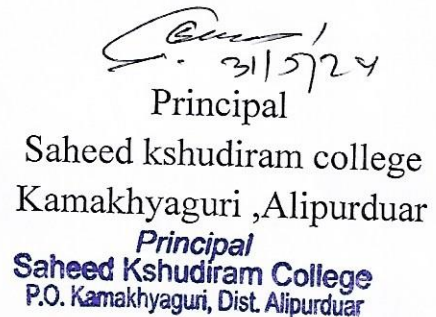 31/5/24
Principal
Saheed kshudiram college
Kamakhyaguri ,Alipurduar
Principal
Saheed Kshudiram College
P.O. Kamakhyaguri, Dist. Alipurduar